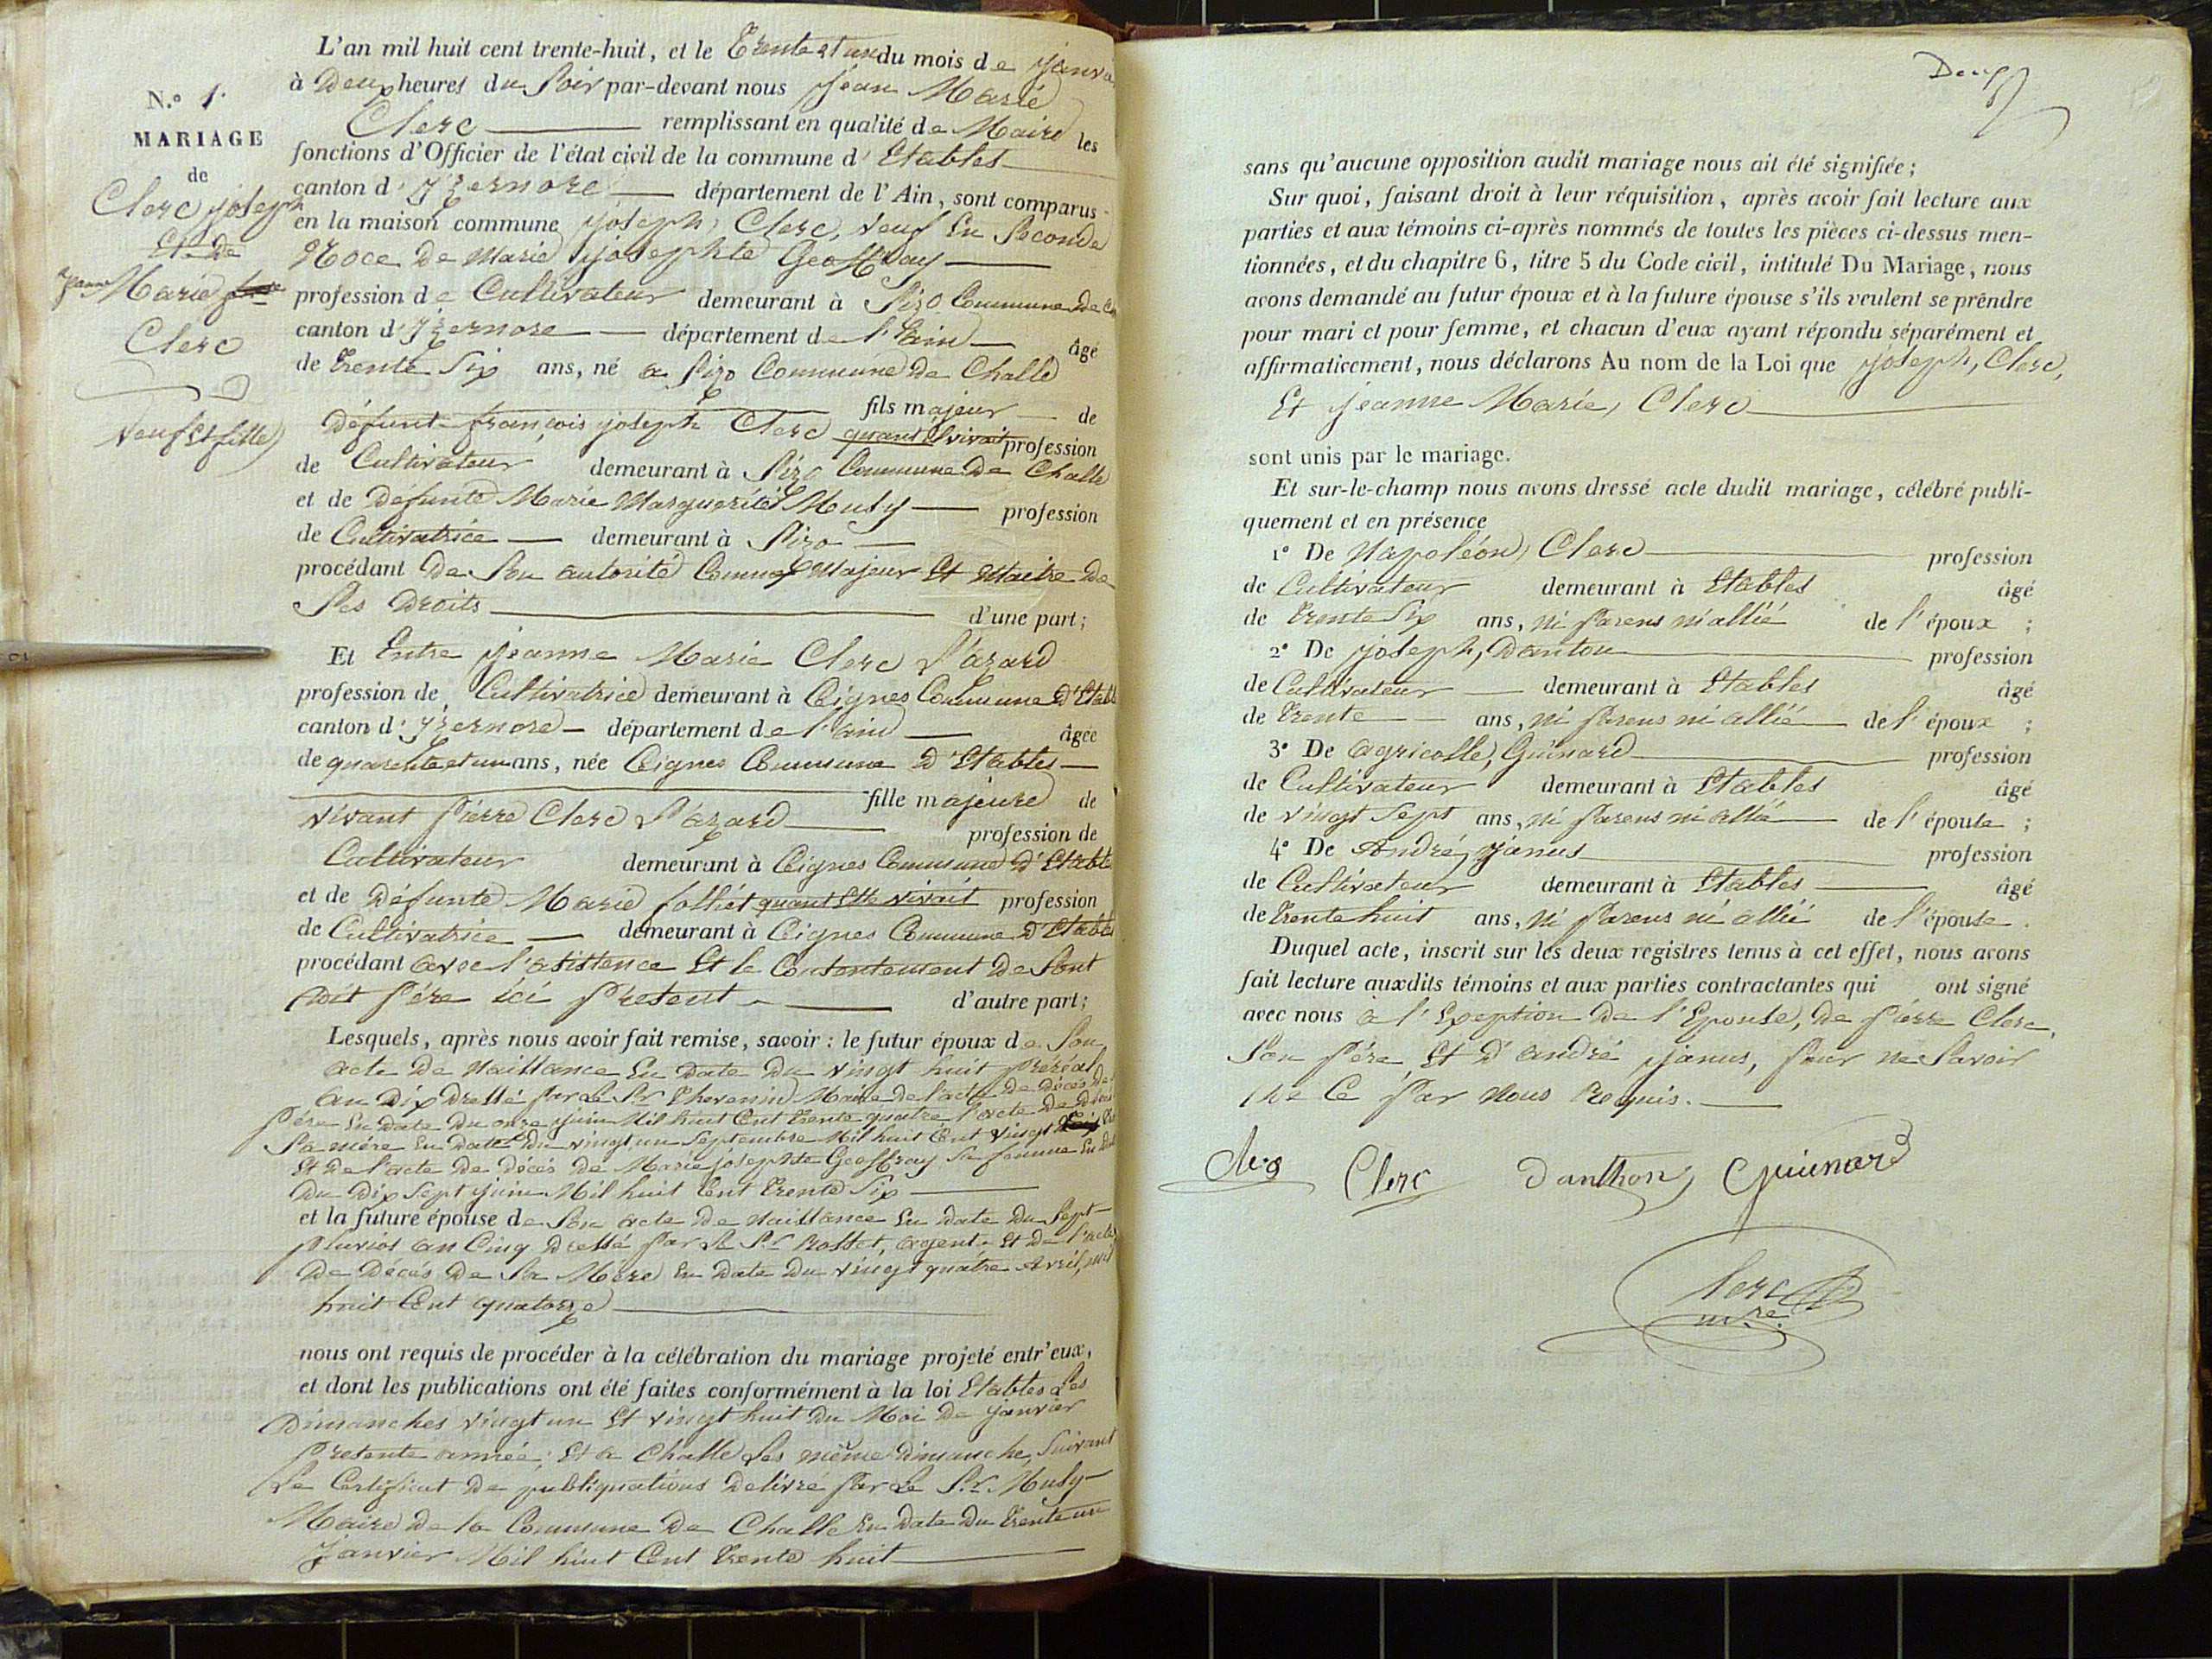 N.o 1.
MARIAGE
de
Clerc joseph
Et De
jeanne Marie
Clerc
veuf et fille
L'an mil huit cent trente-huit, et le Trente et un du mois de janvi
à Deux heures du Soir par-devant nous jean Marie
Clerc remplissant en qualité de Maire les
fonctions d'Officier de l'état civil de la commune d' Etables
canton d' yzernore département de l' Ain, sont comparus
en la maison commune joseph, Clerc, veuf En Seconde
Noce De Marie josephte Geoffray
profession de Cultivateur demeurant à Sizo Commune De
canton d' yzernore département de l'ain âgé
de Trente Six ans, né a Sizo Commune De Challe
fils majeur de
Défunt françois joseph Clerc quant il vivait profession
de Cultivateur demeurant à Sizo Commune De Challe
et de Défunte Marie Marguerite Musy profession
de Cultivatrice demeurant à Sizo
procédant De Son autorité Comme Majeur Et Maitre De
Ses Droits d'une part;
Et Entre jeanne Marie Clerc L'azard
profession de Cultivatrice demeurant à Ceignes Commune D'Etabl
canton d' yzernore département de l'ain âgée
de quarente et un ans, née Ceignes Commune D'Etables
fille majeure de
vivant Pierre Clerc L'azard profession de
Cultivateur demeurant à Ceignes Commune D'Etable
et de Défunte Marie folliet quant Elle vivait profession
de Cultivatrice demeurant à Ceignes Commune D'Etable
procédant avec l'asistence Et le Consentement De Sont
Dit Père ici Present d'autre part;
Lesquels, après nous avoir fait remise, savoir : le futur époux de Son
acte De Naissance En Date Du vingt huit Préréal
an Dix Dressé Par Le Sr Thevenin Maire De l'acte De Décès De
Père En Date Du onze juin Mil huit Cent Trente quatre l'acte De Décès
Sa mère En Date Du vingt un Septembre Mil huit Cent vingt
Et De l'acte De Décés De Marie josephte Geoffray Sa femme En
Du Dix Sept juin Mil huit Cent Trente Six
et la future épouse de Son acte De Naissance En Date Du Sept
pluvios an Cinq Dressé Par Le Sr Rosset, agent Et De l'acte
De Décés De Sa Mere En Date Du vingt quatre Avril, mil
huit Cent quatorze
nous ont requis de procéder à la célébration du mariage projeté entr'eux,
et dont les publications ont été faites conformément à la loi Etables Les
Dimanches vingt un Et vingt huit Du Moi De janvier
Presente année; Et a Challe Les même Dimanche, Suivant
Le Certificat De publiquations Delivré Par Le Sr. Musy
Maire De la Commune De Challe En Date Du Trente un
Janvier Mil huit Cent Trente huit
Deux
sans qu'aucune opposition audit mariage nous ait été signifiée;
Sur quoi, faisant droit à leur réquisition, après avoir fait lecture aux
parties et aux témoins ci-après nommés de toutes les pièces ci-dessus men-
tionnées, et du chapitre 6, titre 5 du Code civil, intitulé Du Mariage, nous
avons demandé au futur époux et à la future épouse s'ils veulent se prendre
pour mari et pour femme, et chacun d'eux ayant répondu séparément et
affirmativement, nous déclarons Au nom de la Loi que joseph, Clerc,
Et jeanne Marie, Clerc
sont unis par le mariage.
Et sur-le-champ nous avons dressé acte dudit mariage, célébré publi-
quement et en présence
1o De Napoléon, Clerc profession
de Cultivateur demeurant à Etables âgé
de Trente Six ans, ni Parens ni allié de l' époux ;
2o De joseph, Danton profession
de Cultivateur demeurant à Etables âgé
de Trente ans, ni Parens ni allié de l' époux ;
3o De agricolle, Guinard profession
de Cultivateur demeurant à Etables âgé
de vingt Sept ans, ni Parens ni allié de l' épouse ;
4o De André, janus profession
de Cultivateur demeurant à Etables âgé
de Trente huit ans, ni Parens ni allié de l' épouse .
Duquel acte, inscrit sur les deux registres tenus à cet effet, nous avons
fait lecture auxdits témoins et aux parties contractantes qui ont signé
avec nous a l' Exeption De l' Epouse, De Pierre Clerc,
Son Père, Et D' andré janus, Pour ne Savoir
De Ce Par Nous Requis.
Clerc Danthon Guinard
Clerc
mre